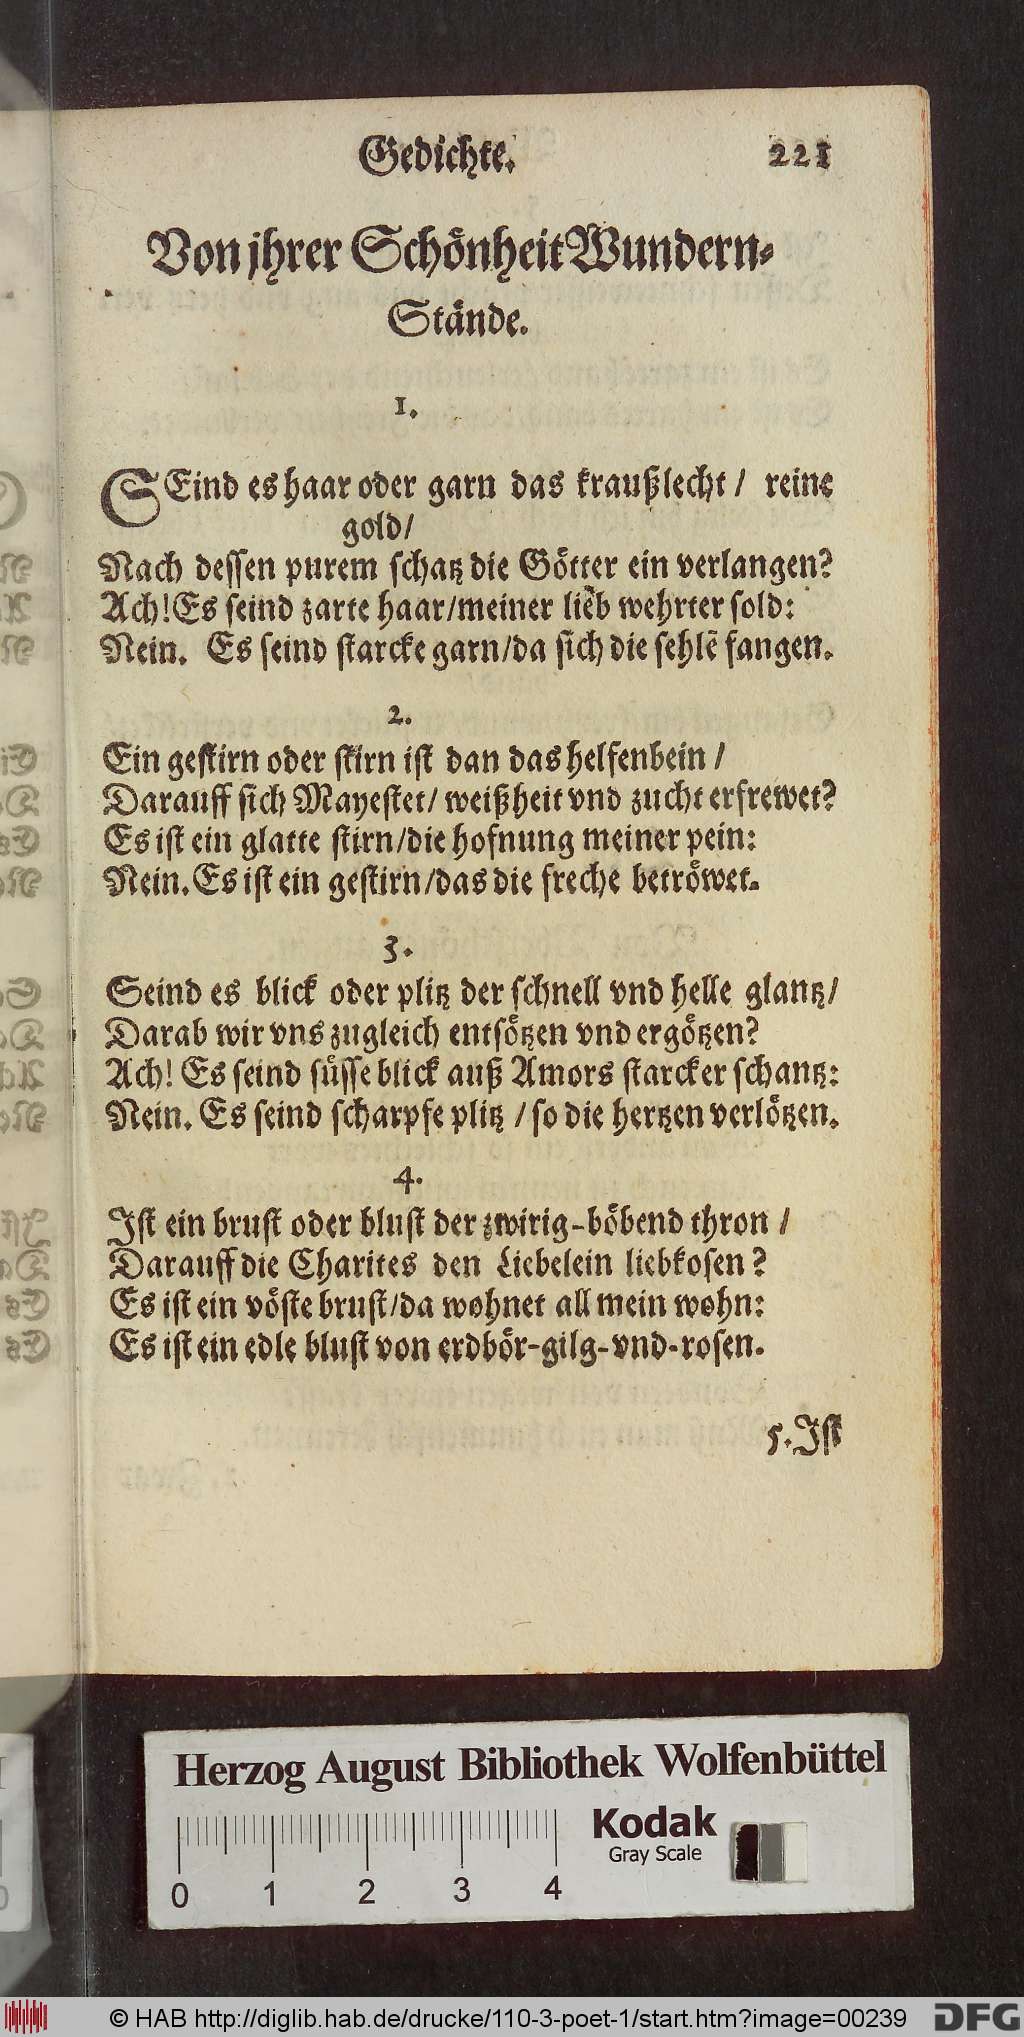 Gedichte. 221
Von jhrer Schönheit Wundern-
Stände.
1.
SEind es haar oder garn das kraußlecht / reine
gold/
Nach dessen purem schatz die Götter ein verlangen?
Ach! Es seind zarte haar/meiner lieb wehrter sold:
Nein. Es seind starcke garn/da sich die sehlẽ fangen.
2.
Ein gestirn oder stirn ist dan das helfenbein /
Darauff sich Mayestet/ weißheit vnd zucht erfrewet?
Es ist ein glatte stirn/die hofnung meiner pein:
Nein. Es ist ein gestirn/das die freche betröwet.
3.
Seind es blick oder plitz der schnell vnd helle glantz/
Darab wir vns zugleich entsötzen vnd ergötzen?
Ach! Es seind süsse blick auß Amors starcker schantz:
Nein. Es seind scharpfe plitz / so die hertzen verlötzen.
4.
Ist ein brust oder blust der zwirig-böbend thron /
Darauff die Charites den Liebelein liebkosen?
Es ist ein vöste brust/da wohnet all mein wohn:
Es ist ein edle blust von erdbör-gilg-vnd-rosen.
5. Ist
Herzog August Bibliothek Wolfenbüttel
Kodak
Gray Scale
0 1 2 3 4
© HAB http://diglib.hab.de/drucke/110-3-poet-1/start.htm?image=00239
DFG